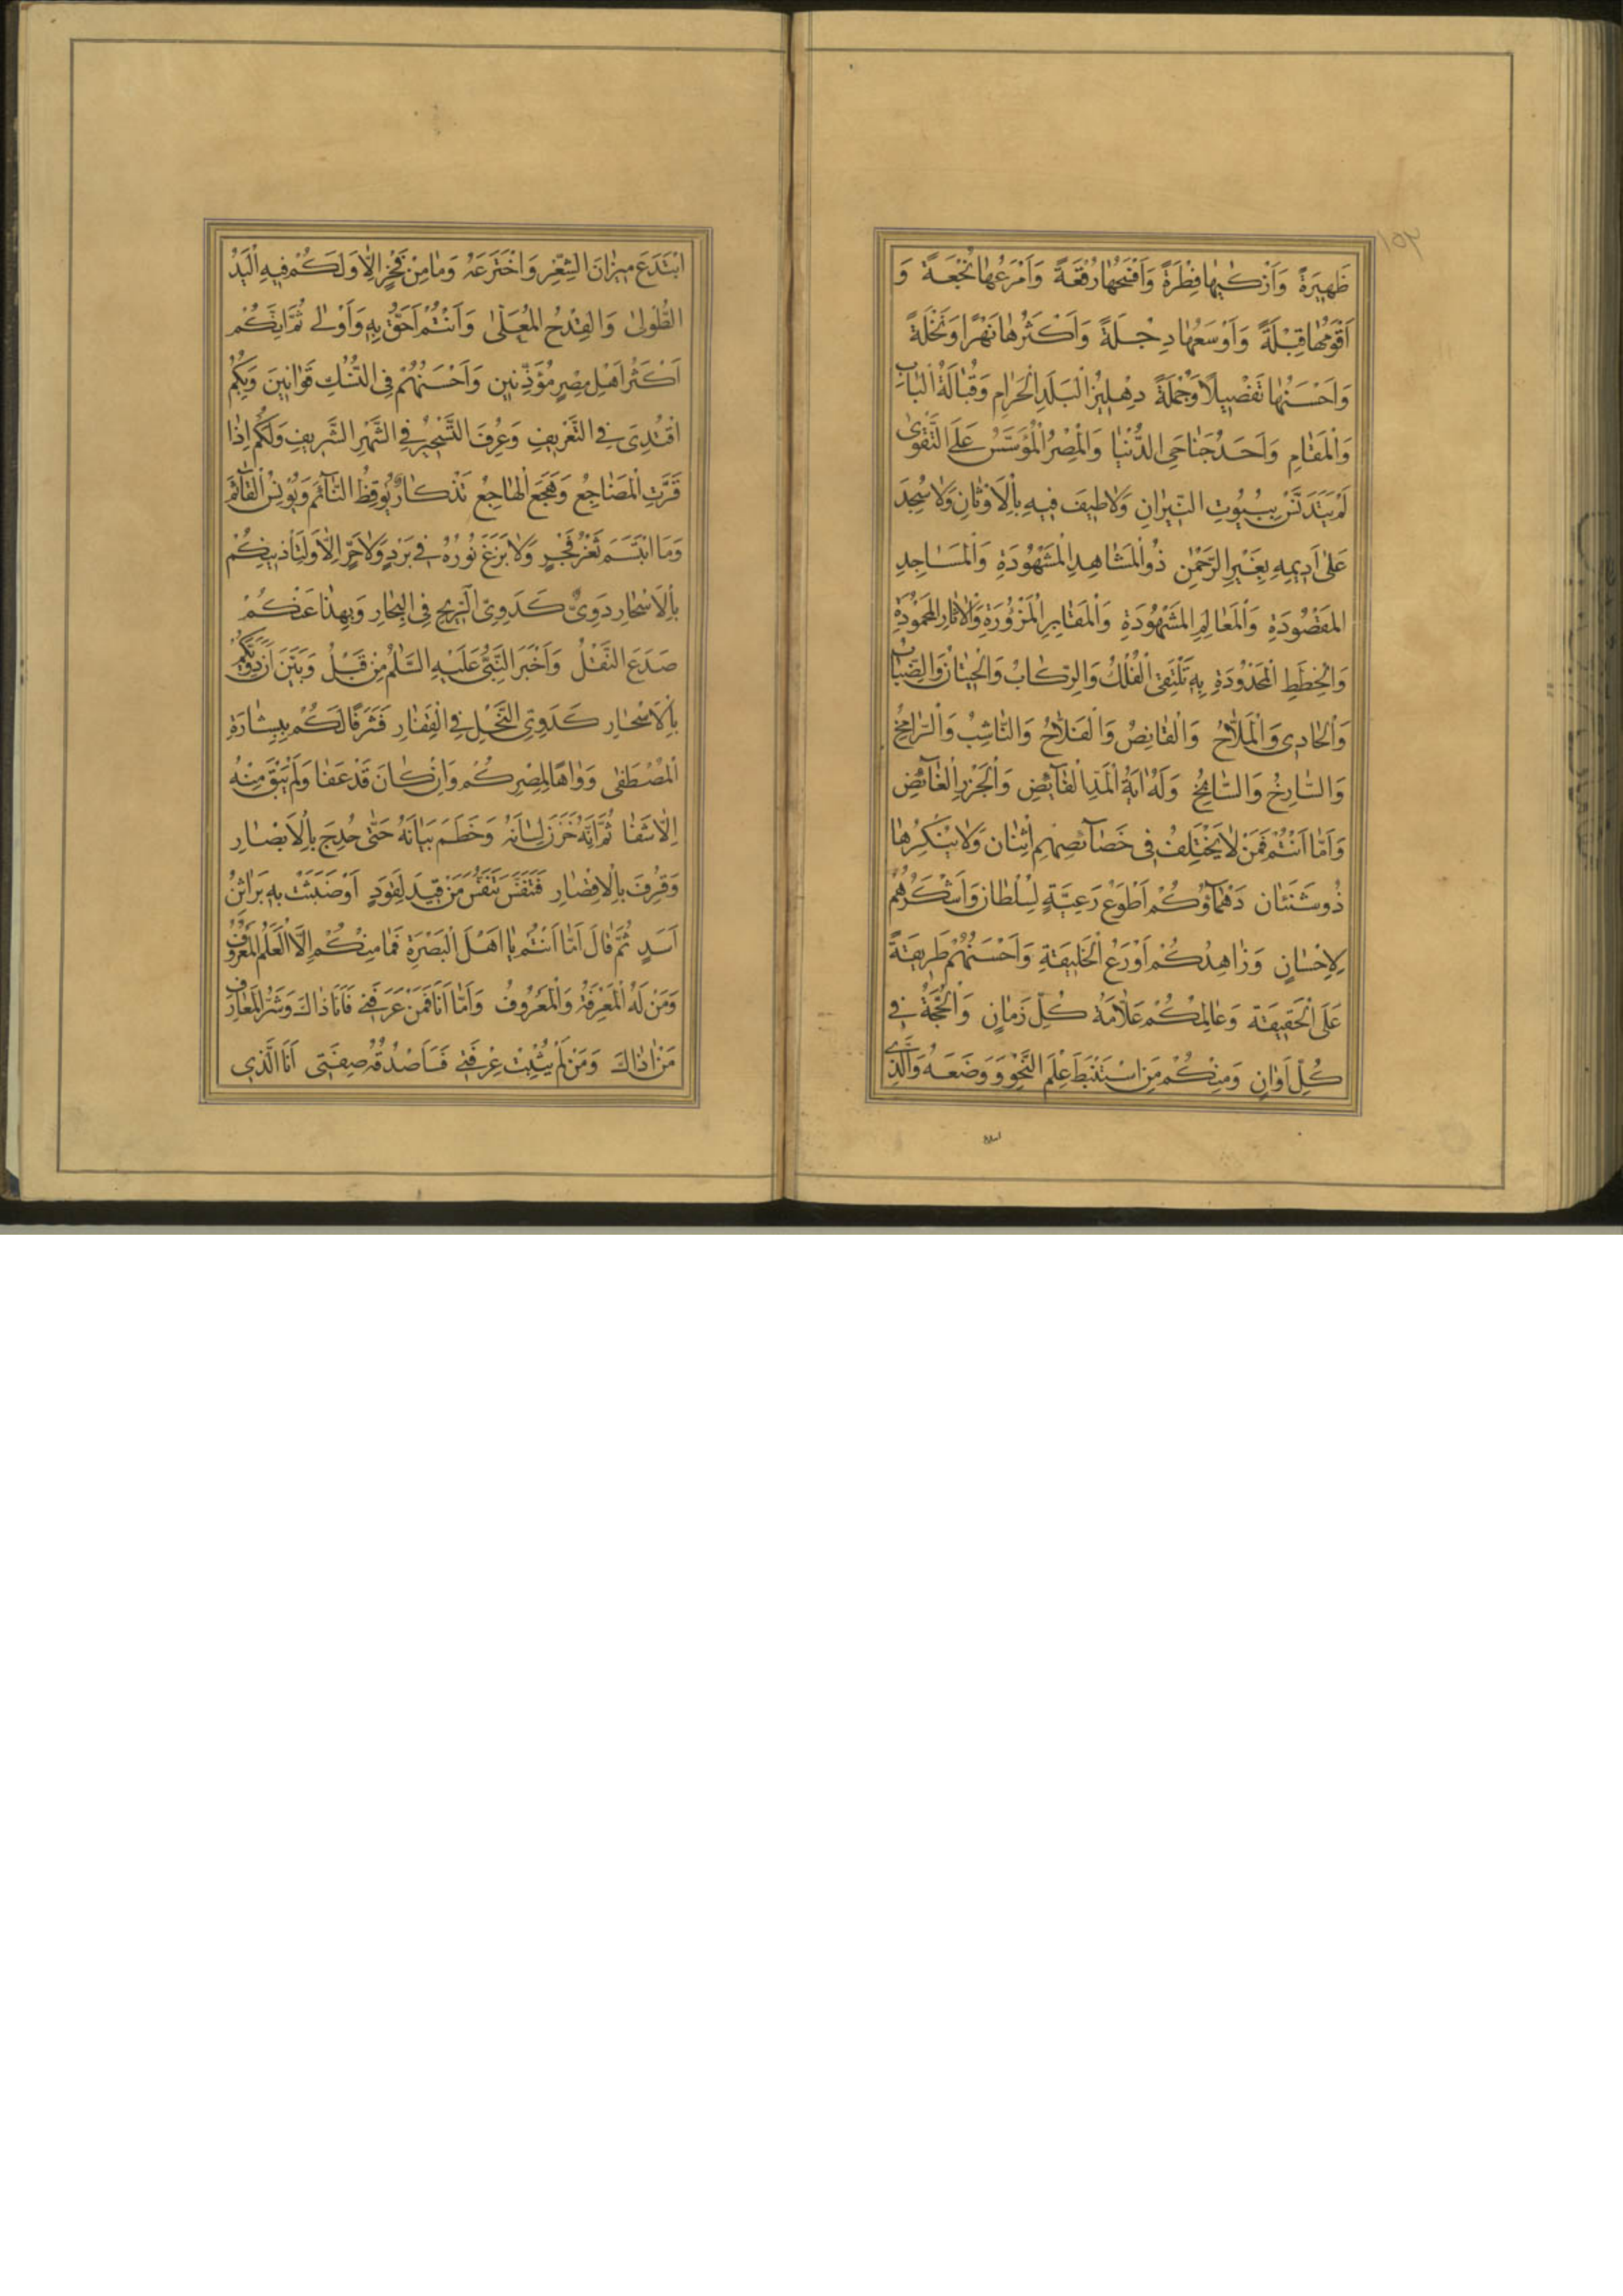 ظَهِيرَةً وَاَزْكٰيهٰا فِطْرَةً وَاَفْسَحُهٰا رُقْعَةً وَاَمْرَعُهٰا نُجْعَةً وَ
اَقْوَمُهٰا قِبْلَةً وَاَوْسَعُهٰا دِجْلَةً وَاَكْثَرُهٰا نَهْرًا وَنَخْلَةً
وَاَحْسَنُهٰا تَفْصِيلًا وَجُمْلَةً دِهْلِيزُ الْبَلَدِ الْحَرٰامِ وَقُبٰالَةُ الْبٰابِ
وَالْمَقٰامِ وَاَحَدُ جَنٰاحَىِ الدُّنْيٰا وَالْمِصْرُ الْمُؤَسَّسُ عَلَى التَّقْوٰى
لَمْ يَتَدَنَّسْ بِبُيُوتِ النِّيرٰانِ وَلٰا طِيفَ فِيهِ بِالْاَوْثٰانِ وَلٰا سُجِدَ
عَلٰى اَدِيمِهِ بِغَيْرِ الرَّحْمٰنِ ذُو الْمَشٰاهِدِ الْمَشْهُودَةِ وَالْمَسٰاجِدِ
الْمَقْصُودَةِ وَالْمَعٰالِمِ الْمَشْهُودَةِ وَالْمَقٰابِرِ الْمَزُورَةِ وَالْاٰثٰارِ الْمَحْمُودَةِ
وَالْخِطَطِ الْمَحْدُودَةِ بِهِ تَلْتَقِى الْفُلْكُ وَالرِّكٰابُ وَالْحِيتٰانُ وَالضِّبٰابُ
وَالْحٰادِى وَالْمَلّٰاحُ وَالْقٰانِصُ وَالْفَلّٰاحُ وَالنّٰاشِبُ وَالرّٰامِحُ
وَالسّٰارِحُ وَالسّٰابِحُ وَلَهُ اٰيَةُ الْمَدِّ الْفٰائِضِ وَالْجَزْرِ الْغٰائِضِ
وَاَمّٰا اَنْتُمْ فَمَنْ لٰا يَخْتَلِفُ فِى خَصٰائِصِهِمِ اثْنٰانِ وَلٰا يُنْكِرُهٰا
ذُو شَنَئٰانٍ دَهْمٰاؤُكُمْ اَطْوَعُ رَعِيَّةٍ لِسُلْطٰانٍ وَاَشْكَرُهُمْ
لِاِحْسٰانٍ وَزٰاهِدُكُمْ اَوْرَعُ الْخَلِيقَةِ وَاَحْسَنُهُمْ طَرِيقَةً
عَلَى الْحَقِيقَةِ وَعٰالِمُكُمْ عَلّٰامَةُ كُلِّ زَمٰانٍ وَالْحُجَّةُ فِى
كُلِّ اَوٰانٍ وَمِنْكُمْ مَنِ اسْتَنْبَطَ عِلْمَ النَّحْوِ وَوَضَعَهُ وَالَّذِى
ابْتَدَعَ مِيزٰانَ الشِّعْرِ وَاخْتَرَعَهُ وَمٰا مِنْ فَخْرٍ اِلّٰا وَلَكُمْ فِيهِ الْيَدُ
الطُّولٰى وَالْقِدْحُ الْمُعَلّٰى وَاَنْتُمْ اَحَقُّ بِهِ وَاَوْلٰى ثُمَّ اِنَّكُمْ
اَكْثَرُ اَهْلِ مِصْرٍ مُؤَذِّنِينَ وَاَحْسَنُهُمْ فِى النُّسُكِ قَوٰانِينَ وَبِكُمُ
اقْتُدِىَ فِى التَّعْرِيفِ وَعُرِفَ التَّسْحِيرُ فِى الشَّهْرِ الشَّرِيفِ وَلَكُمْ اِذٰا
قَرَّتِ الْمَضٰاجِعُ وَهَجَعَ الْهٰاجِعُ تَذْكٰارٌ يُوقِظُ النّٰائِمَ وَيُونِسُ الْقٰائِمَ
وَمَا ابْتَسَمَ ثَغْرُ فَجْرٍ وَلٰا بَزَغَ نُورُهُ فِى بَرْدٍ وَلٰا حَرٍّ اِلّٰا وَلِتَأْذِينِكُمْ
بِالْاَسْحٰارِ دَوِىٌّ كَدَوِىِّ الرِّيحِ فِى الْبِحٰارِ وَبِهٰذٰا عَنْكُمْ
صَدَعَ النَّقْلُ وَاَخْبَرَ النَّبِىُّ عَلَيْهِ السَّلٰمُ مِنْ قَبْلُ وَبَيَّنَ اَنَّ دَوِيَّكُمْ
بِالْاَسْحٰارِ كَدَوِىِّ النَّحْلِ فِى الْقِفٰارِ فَشَرَفًا لَكُمْ بِبِشٰارَةِ
الْمُصْطَفٰى وَوٰاهًا لِمِصْرِكُمْ وَاِنْ كٰانَ قَدْ عَفٰا وَلَمْ يَبْقَ مِنْهُ
اِلّٰا شَفٰا ثُمَّ اِنَّهُ خَزَنَ لِسٰانَهُ وَخَطَمَ بَيٰانَهُ حَتّٰى حُدِجَ بِالْاَبْصٰارِ
وَقُرِفَ بِالْاِقْصٰارِ فَتَنَفَّسَ تَنَفُّسَ مَنْ قِيدَ لِقَوَدٍ اَوْ ضَبَثَتْ بِهِ بَرٰاثِنُ
اَسَدٍ ثُمَّ قٰالَ اَمّٰا اَنْتُمْ يٰا اَهْلَ الْبَصْرَةِ فَمٰا مِنْكُمْ اِلَّا الْعَلَمُ الْمَعْرُوفُ
وَمَنْ لَهُ الْمَعْرِفَةُ وَالْمَعْرُوفُ وَاَمّٰا اَنَا فَمَنْ عَرَفَنِى فَاَنَا ذٰاكَ وَشَرُّ الْمَعٰارِفِ
مَنْ اٰذٰاكَ وَمَنْ لَمْ يُثْبِتْ عِرْفَتِى فَسَاَصْدُقُهُ صِفَتِى اَنَا الَّذِى